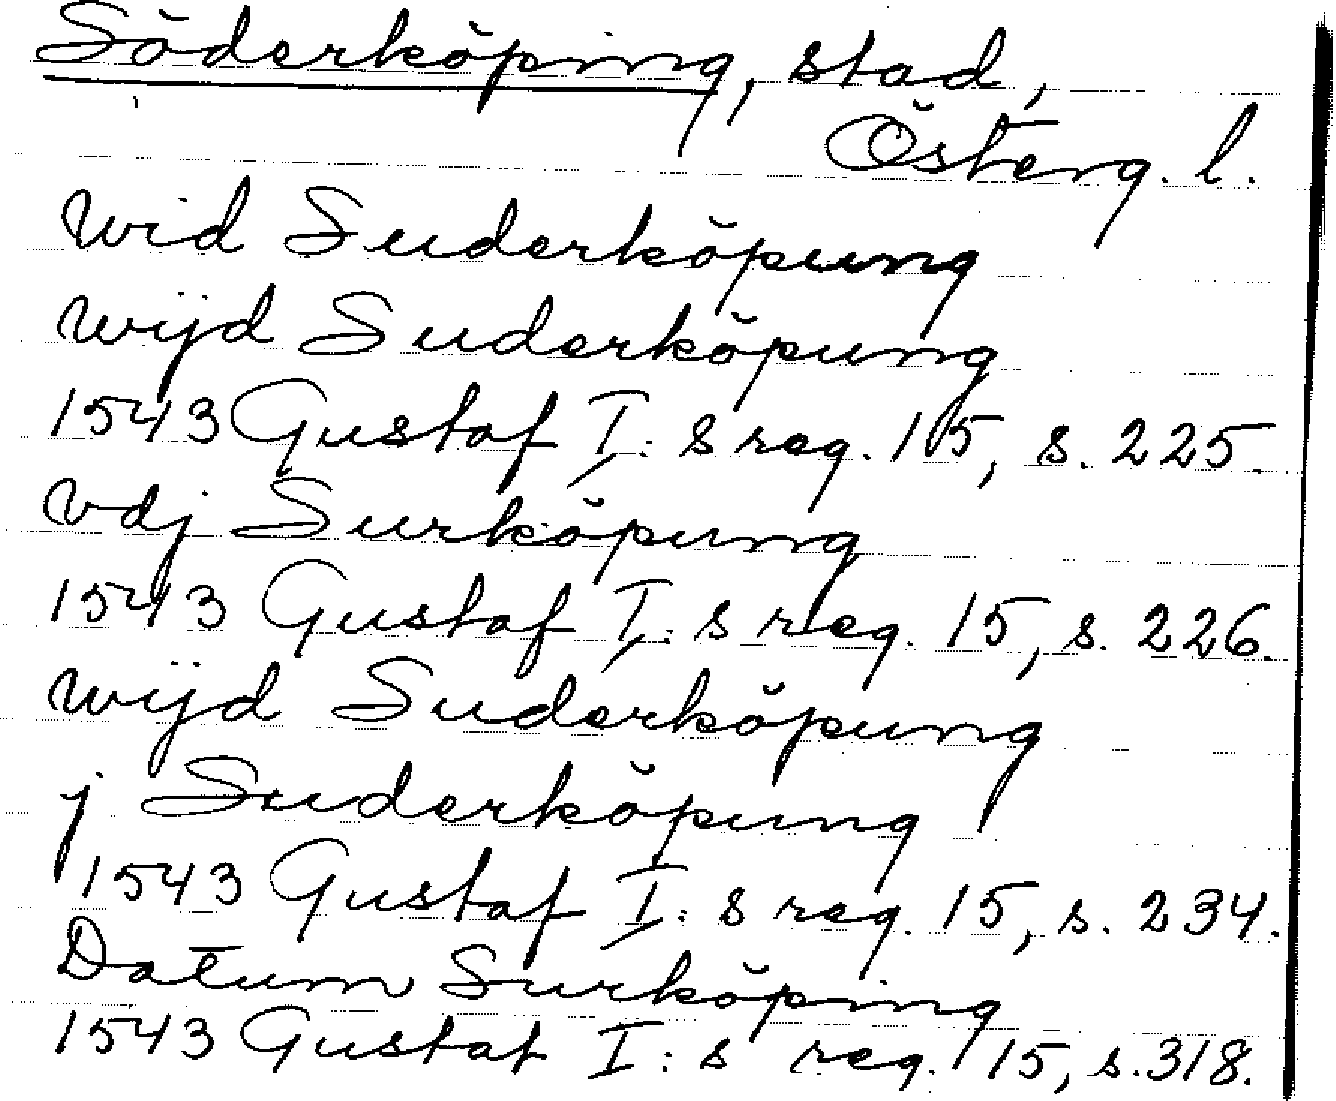 Söderköping, stad,
Österg. l.
wid Suderköpung
wijd Suderköpung
1543 Gustaf I:s reg. 15, s. 225.
vdj Surköpung
1543 Gustaf I:s reg. 15, s. 226.
wijd Suderköpung
j Suderköpung
1543 Gustaf I:s reg. 15, s. 234.
Datum Surköping
1543 Gustaf I:s reg. 15, s. 318.